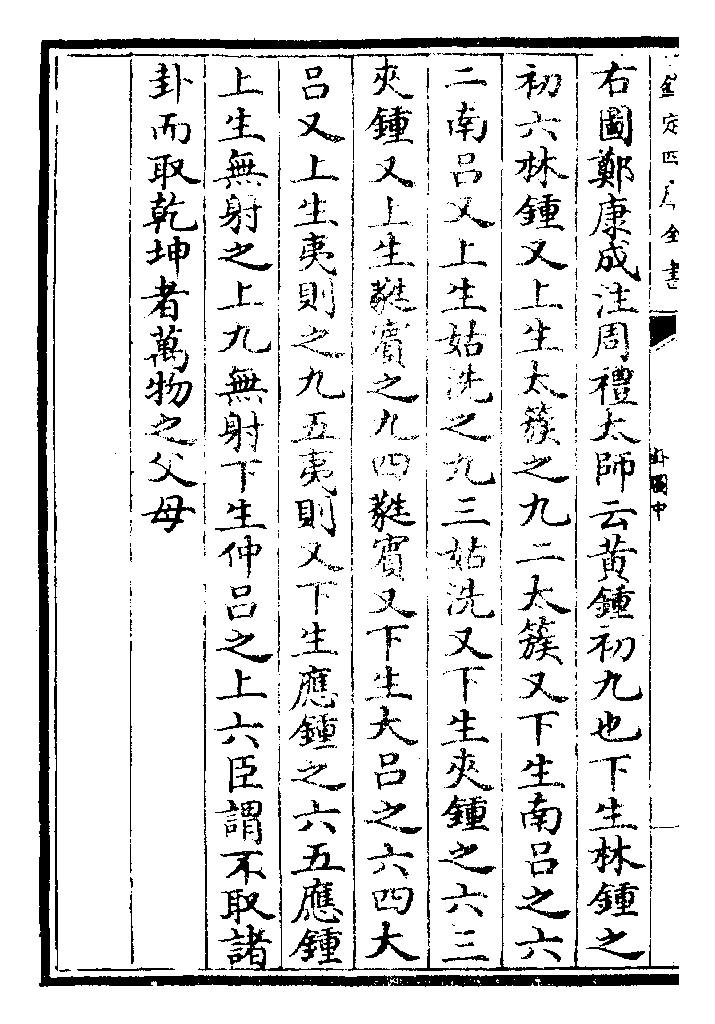 欽定四庫全書
卦圖中
右圖鄭康成注周禮太師云黃鍾初九也下生林鍾之
初六林鍾又上生太簇之九二太簇又下生南呂之六
二南呂又上生姑洗之九三姑洗又下生夾鍾之六三
夾鍾又上生蕤賓之九四蕤賓又下生大呂之六四大
呂又上生夷則之九五夷則又下生應鍾之六五應鍾
上生無射之上九無射下生仲呂之上六臣謂不取諸
卦而取乾坤者萬物之父母